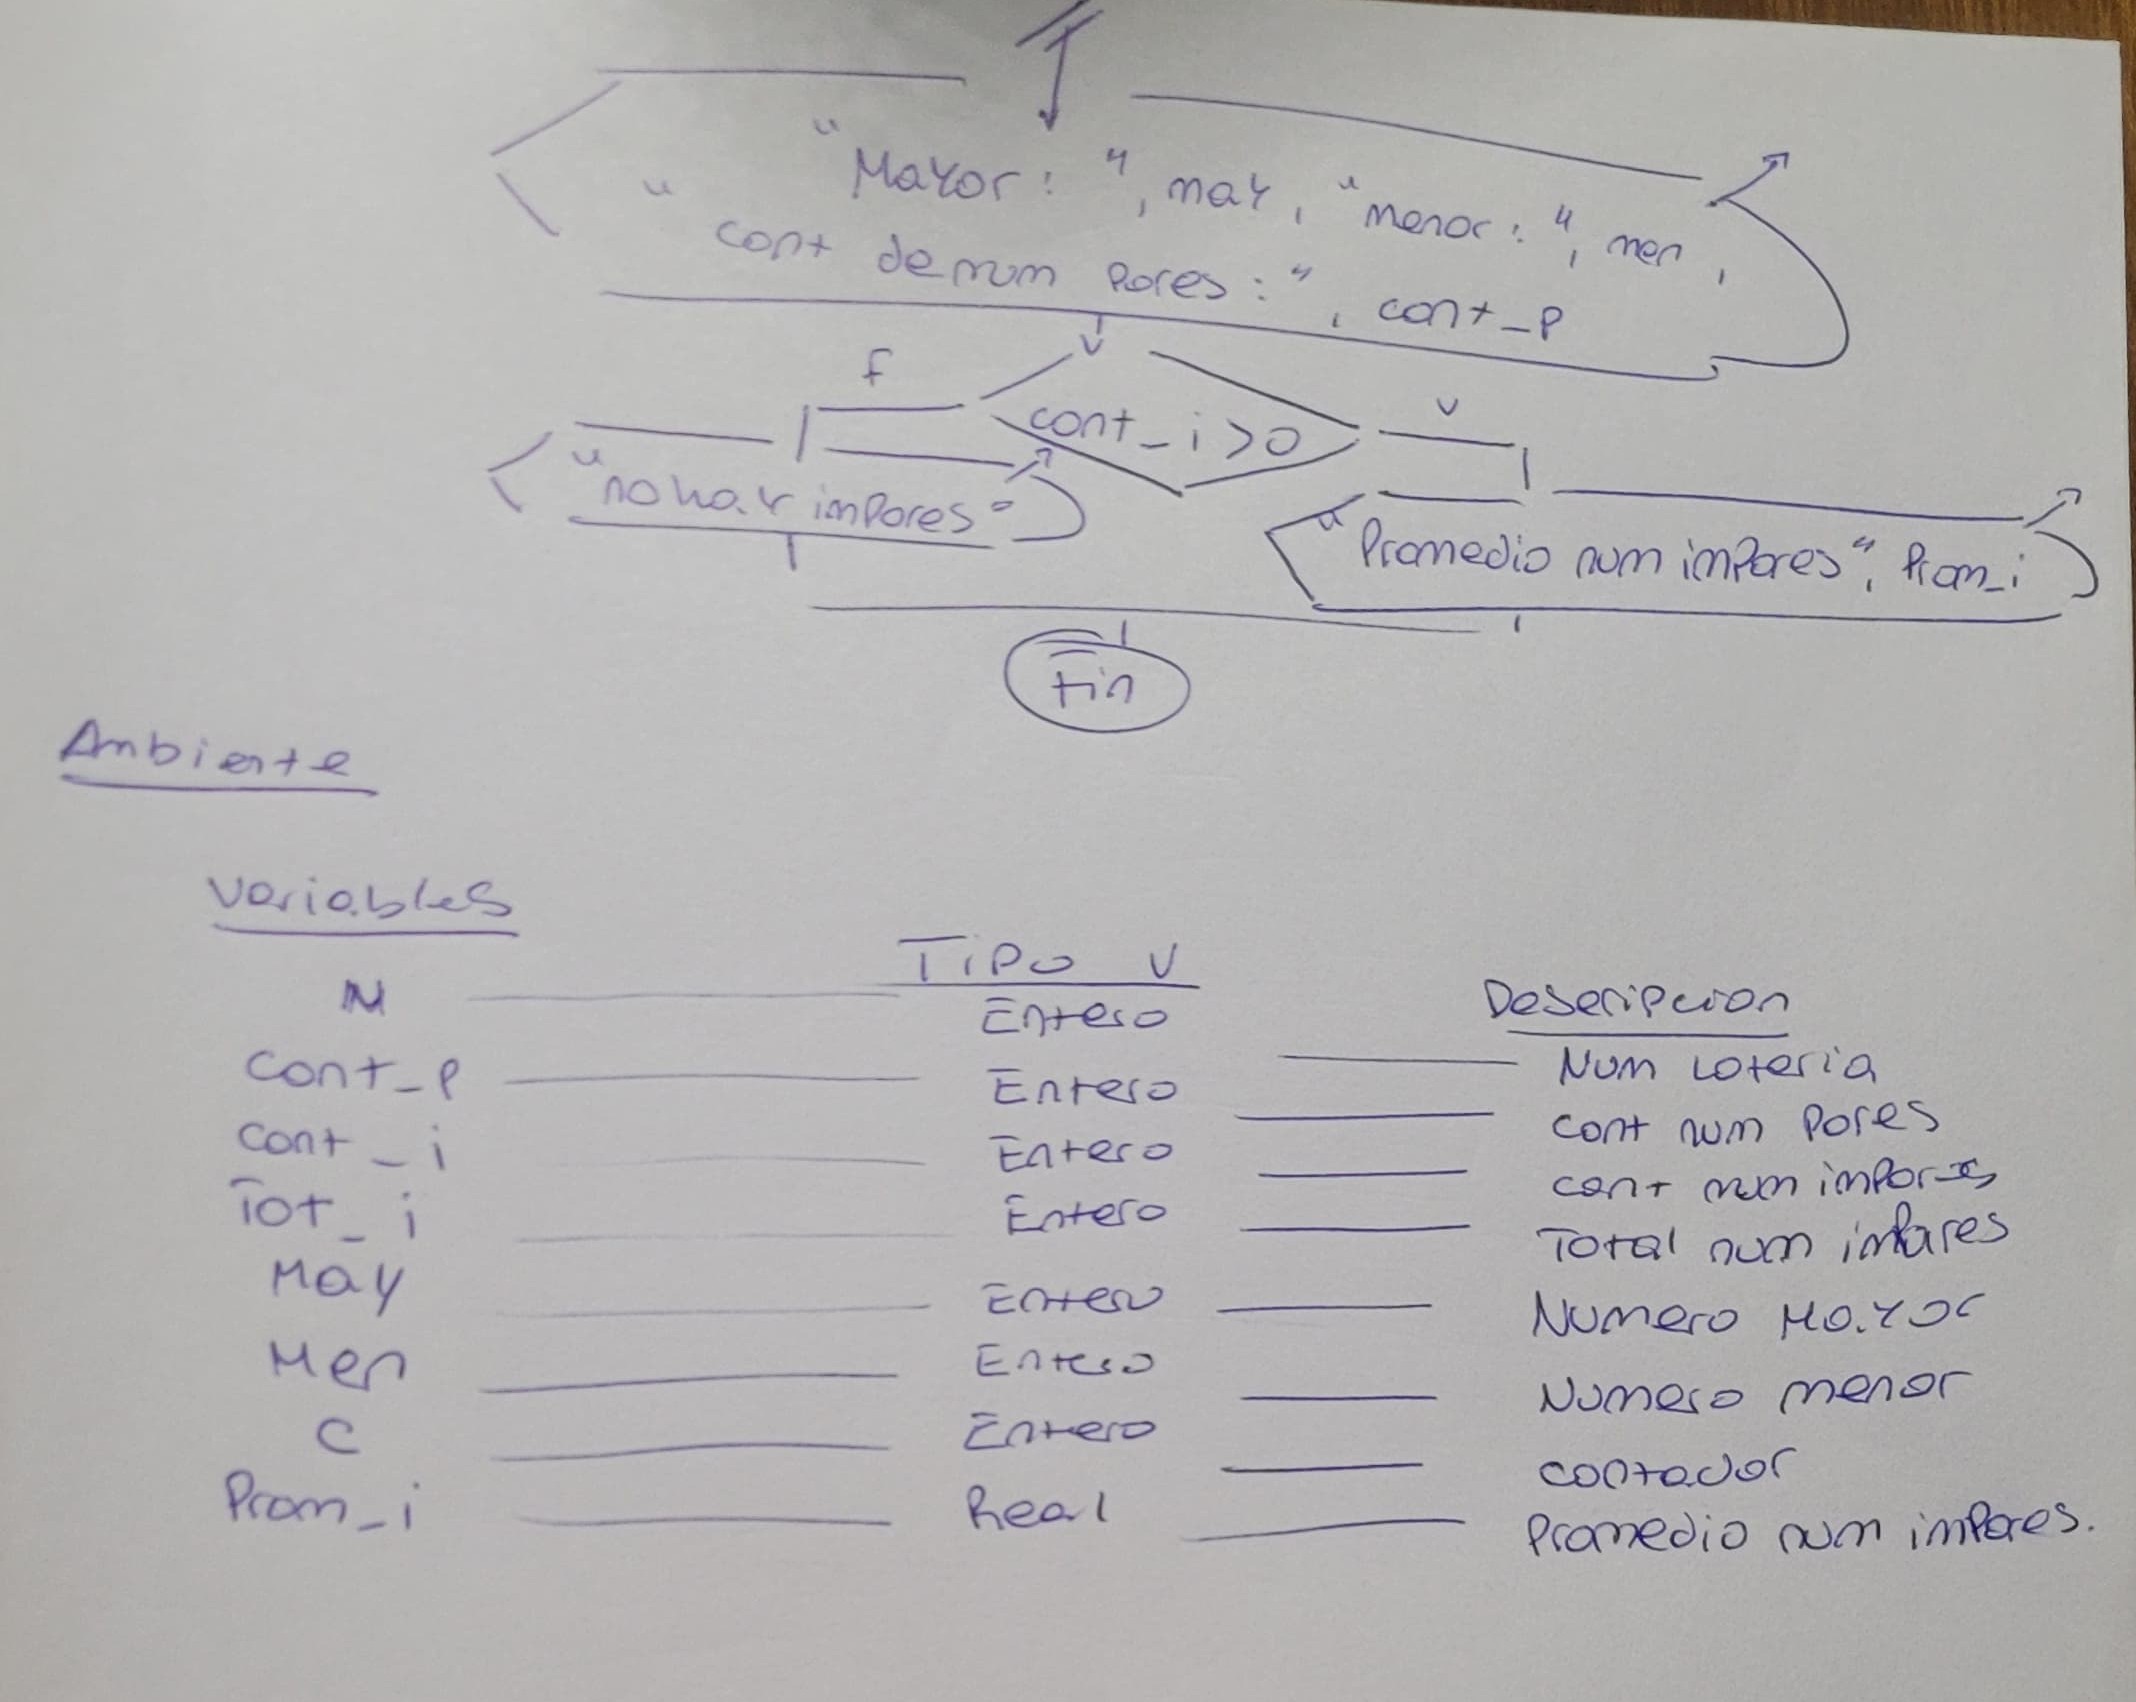 "Mayor: ", may, "menor: ", men,
" cont de num pares: ", cont_p
f
cont_i>0
v
"no hay impares"
"Promedio num impares", Prom_i
Fin
Ambiente
Variables Tipo V Descripcion
N Entero Num Loteria
Cont_p Entero cont num Pares
Cont_i Entero cont num impares
Tot_i Entero Total num impares
May Entero Numero Mayor
Men Entero Numero menor
C Entero contador
Prom_i Real Promedio num impares.